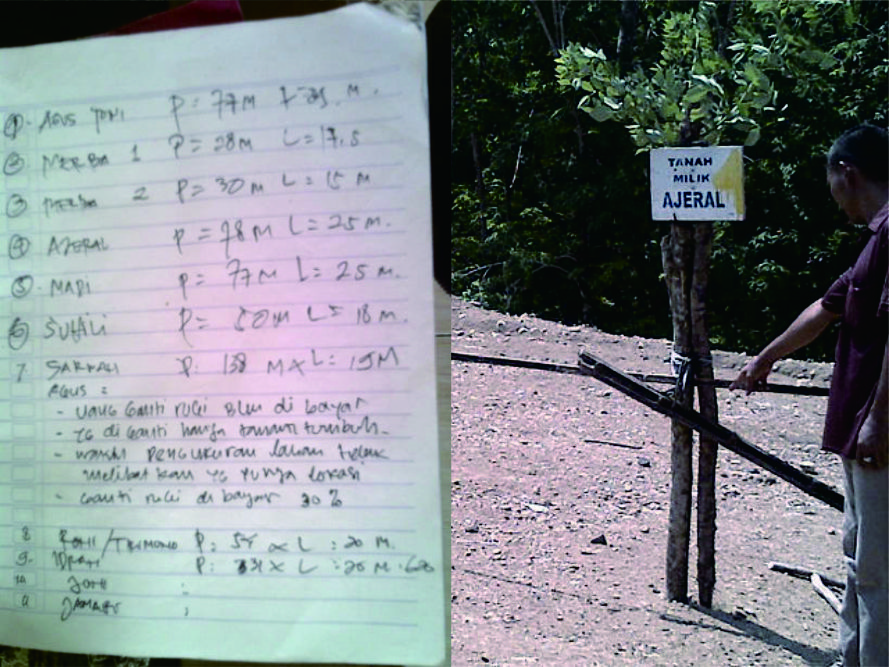 1. AGUS TONI P = 77 M L = M.
2 MERBA 1 P = 28M L = 17.5
3 MERBA 2 P = 30 M L = 15 M
4 AJERAL P = 78 M L = 25 M.
5. MADI P = 77 M L = 25 M.
6 SUHAILI P = 50 M L = 18 M.
7 P. 138 M x L = 15 M
AGUS =
- uang Ganti rugi BLM di bayar
- yg di Ganti hanya tanam tumbuh.
- waktu pengukuran lahan tidak
melibatkan yg punya lokasi
- Ganti rugi di bayar 30 %
8 / TRIMONO P. x L = 20 M.
9. P: x L = 20 M.
10 :
11 ;
TANAH
MILIK
AJERAL